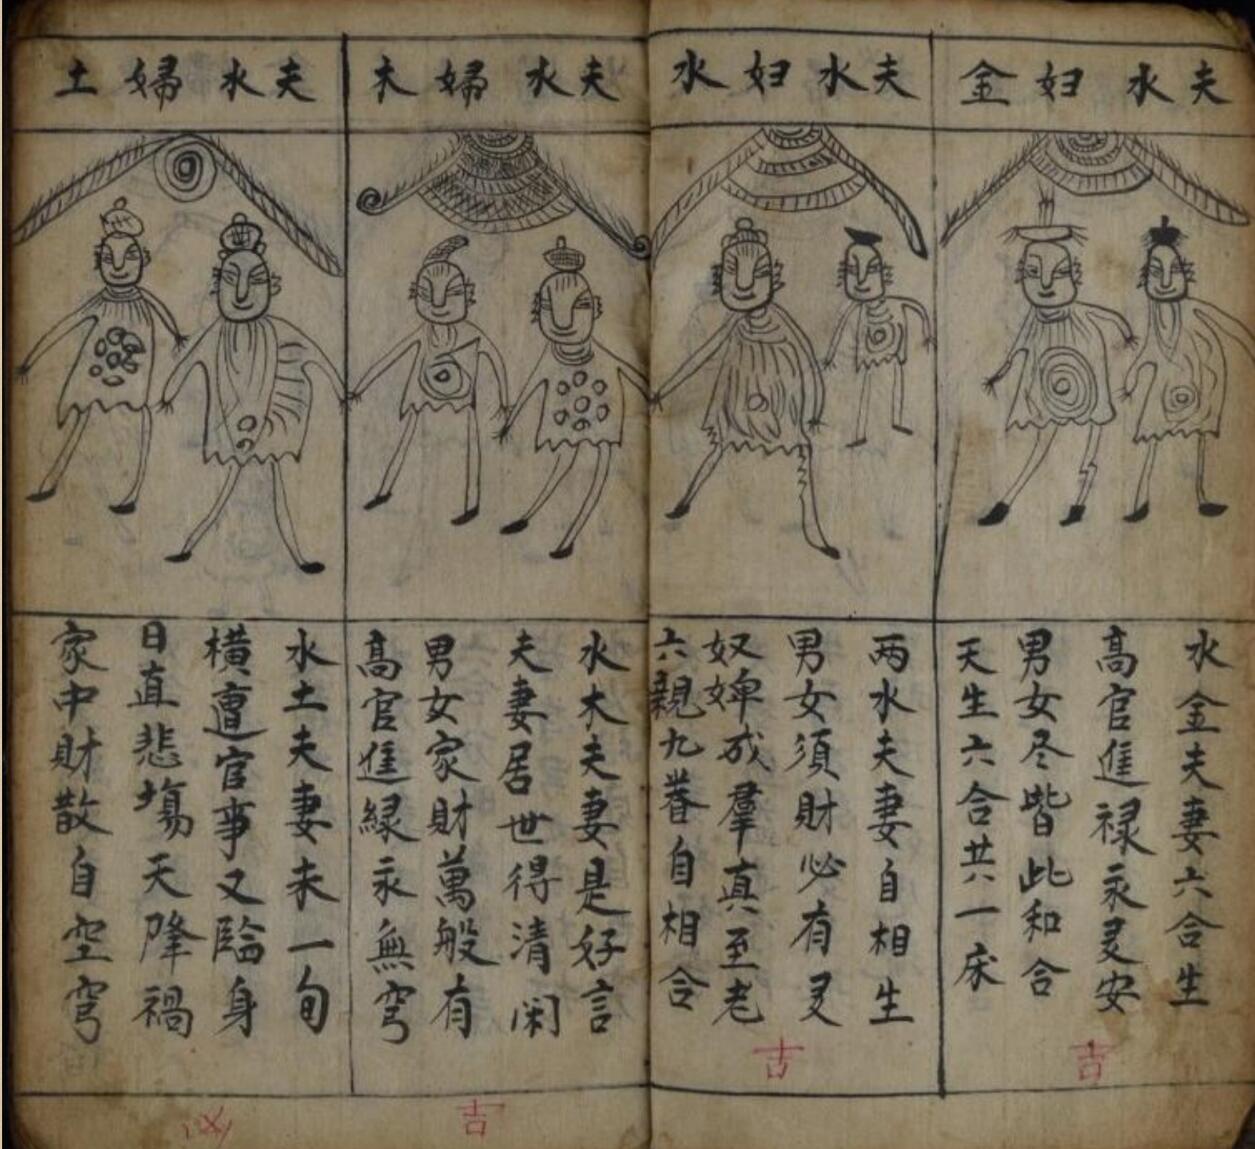 夫水妇金
水金夫妻六合生
高官進禄永灵安
男女尽皆此和合
天生六合共一床
吉
夫水妇水
两水夫妻自相生
男女須財必有灵
奴婢成羣真至老
六親九眷自相合
吉
夫水婦木
水木夫妻是好言
夫妻居世得清闲
男女家財萬般有
高官進緑永無穹
吉
夫水婦土
水土夫妻未一旬
橫遭官事又臨身
日直悲塲天降禍
家中財散自空穹
凶